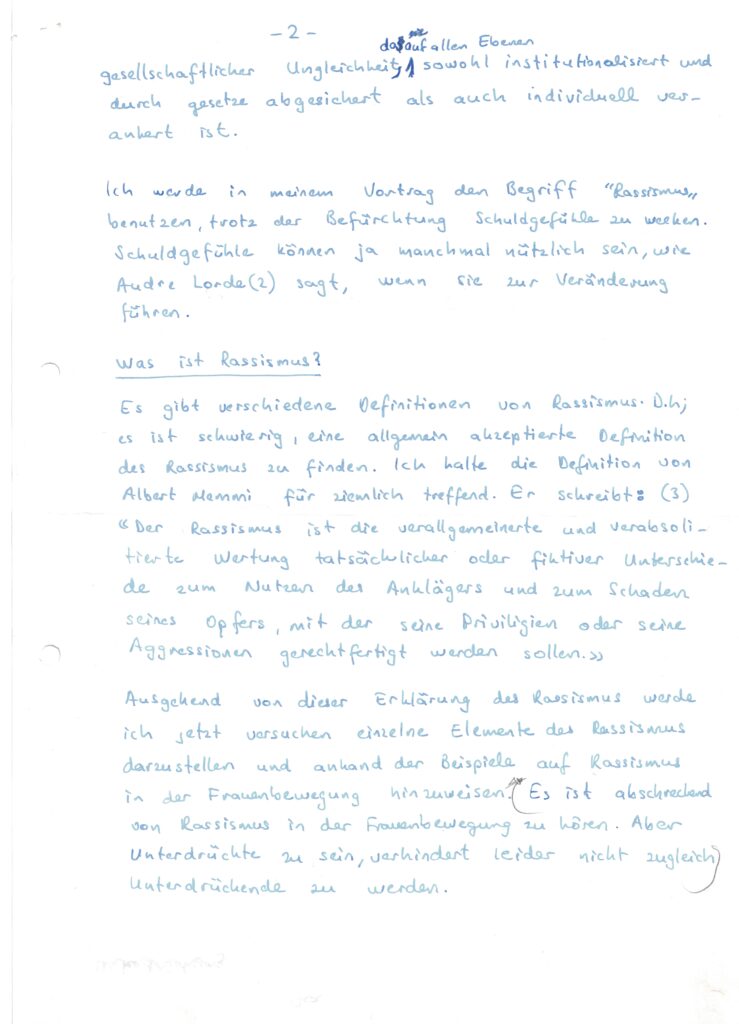 - 2 -
das auf allen Ebenen
gesellschaftlicher Ungleichheit, sowohl institutionalisiert und
durch gesetze abgesichert als auch individuell ver-
ankert ist.
Ich werde in meinem Vortrag den Begriff "Rassismus"
benutzen, trotz der Befürchtung Schuldgefühle zu wecken.
Schuldgefühle können ja manchmal nützlich sein, wie
Audre Lorde (2) sagt, wenn sie zur Veränderung
führen.
Was ist Rassismus?
Es gibt verschiedene Definitionen von Rassismus. D.h;
es ist schwierig, eine allgemein akzeptierte Definition
des Rassismus zu finden. Ich halte die Definition von
Albert Memmi für ziemlich treffend. Er schreibt: (3)
"Der Rassismus ist die verallgemeinerte und verabsolu-
tierte Wertung tatsächlicher oder fiktiver Unterschie-
de zum Nutzen des Anklägers und zum Schaden
seines Opfers, mit der seine Priviligien oder seine
Aggressionen gerechtfertigt werden sollen.»
Ausgehend von dieser Erklärung des Rassismus werde
ich jetzt versuchen einzelne Elemente des Rassismus
darzustellen und anhand der Beispiele auf Rassismus
in der Frauenbewegung hinzuweisen. (Es ist abschreckend
von Rassismus in der Frauenbewegung zu hören. Aber
Unterdrückte zu sein, verhindert leider nicht zugleich
Unterdrückende zu werden.)